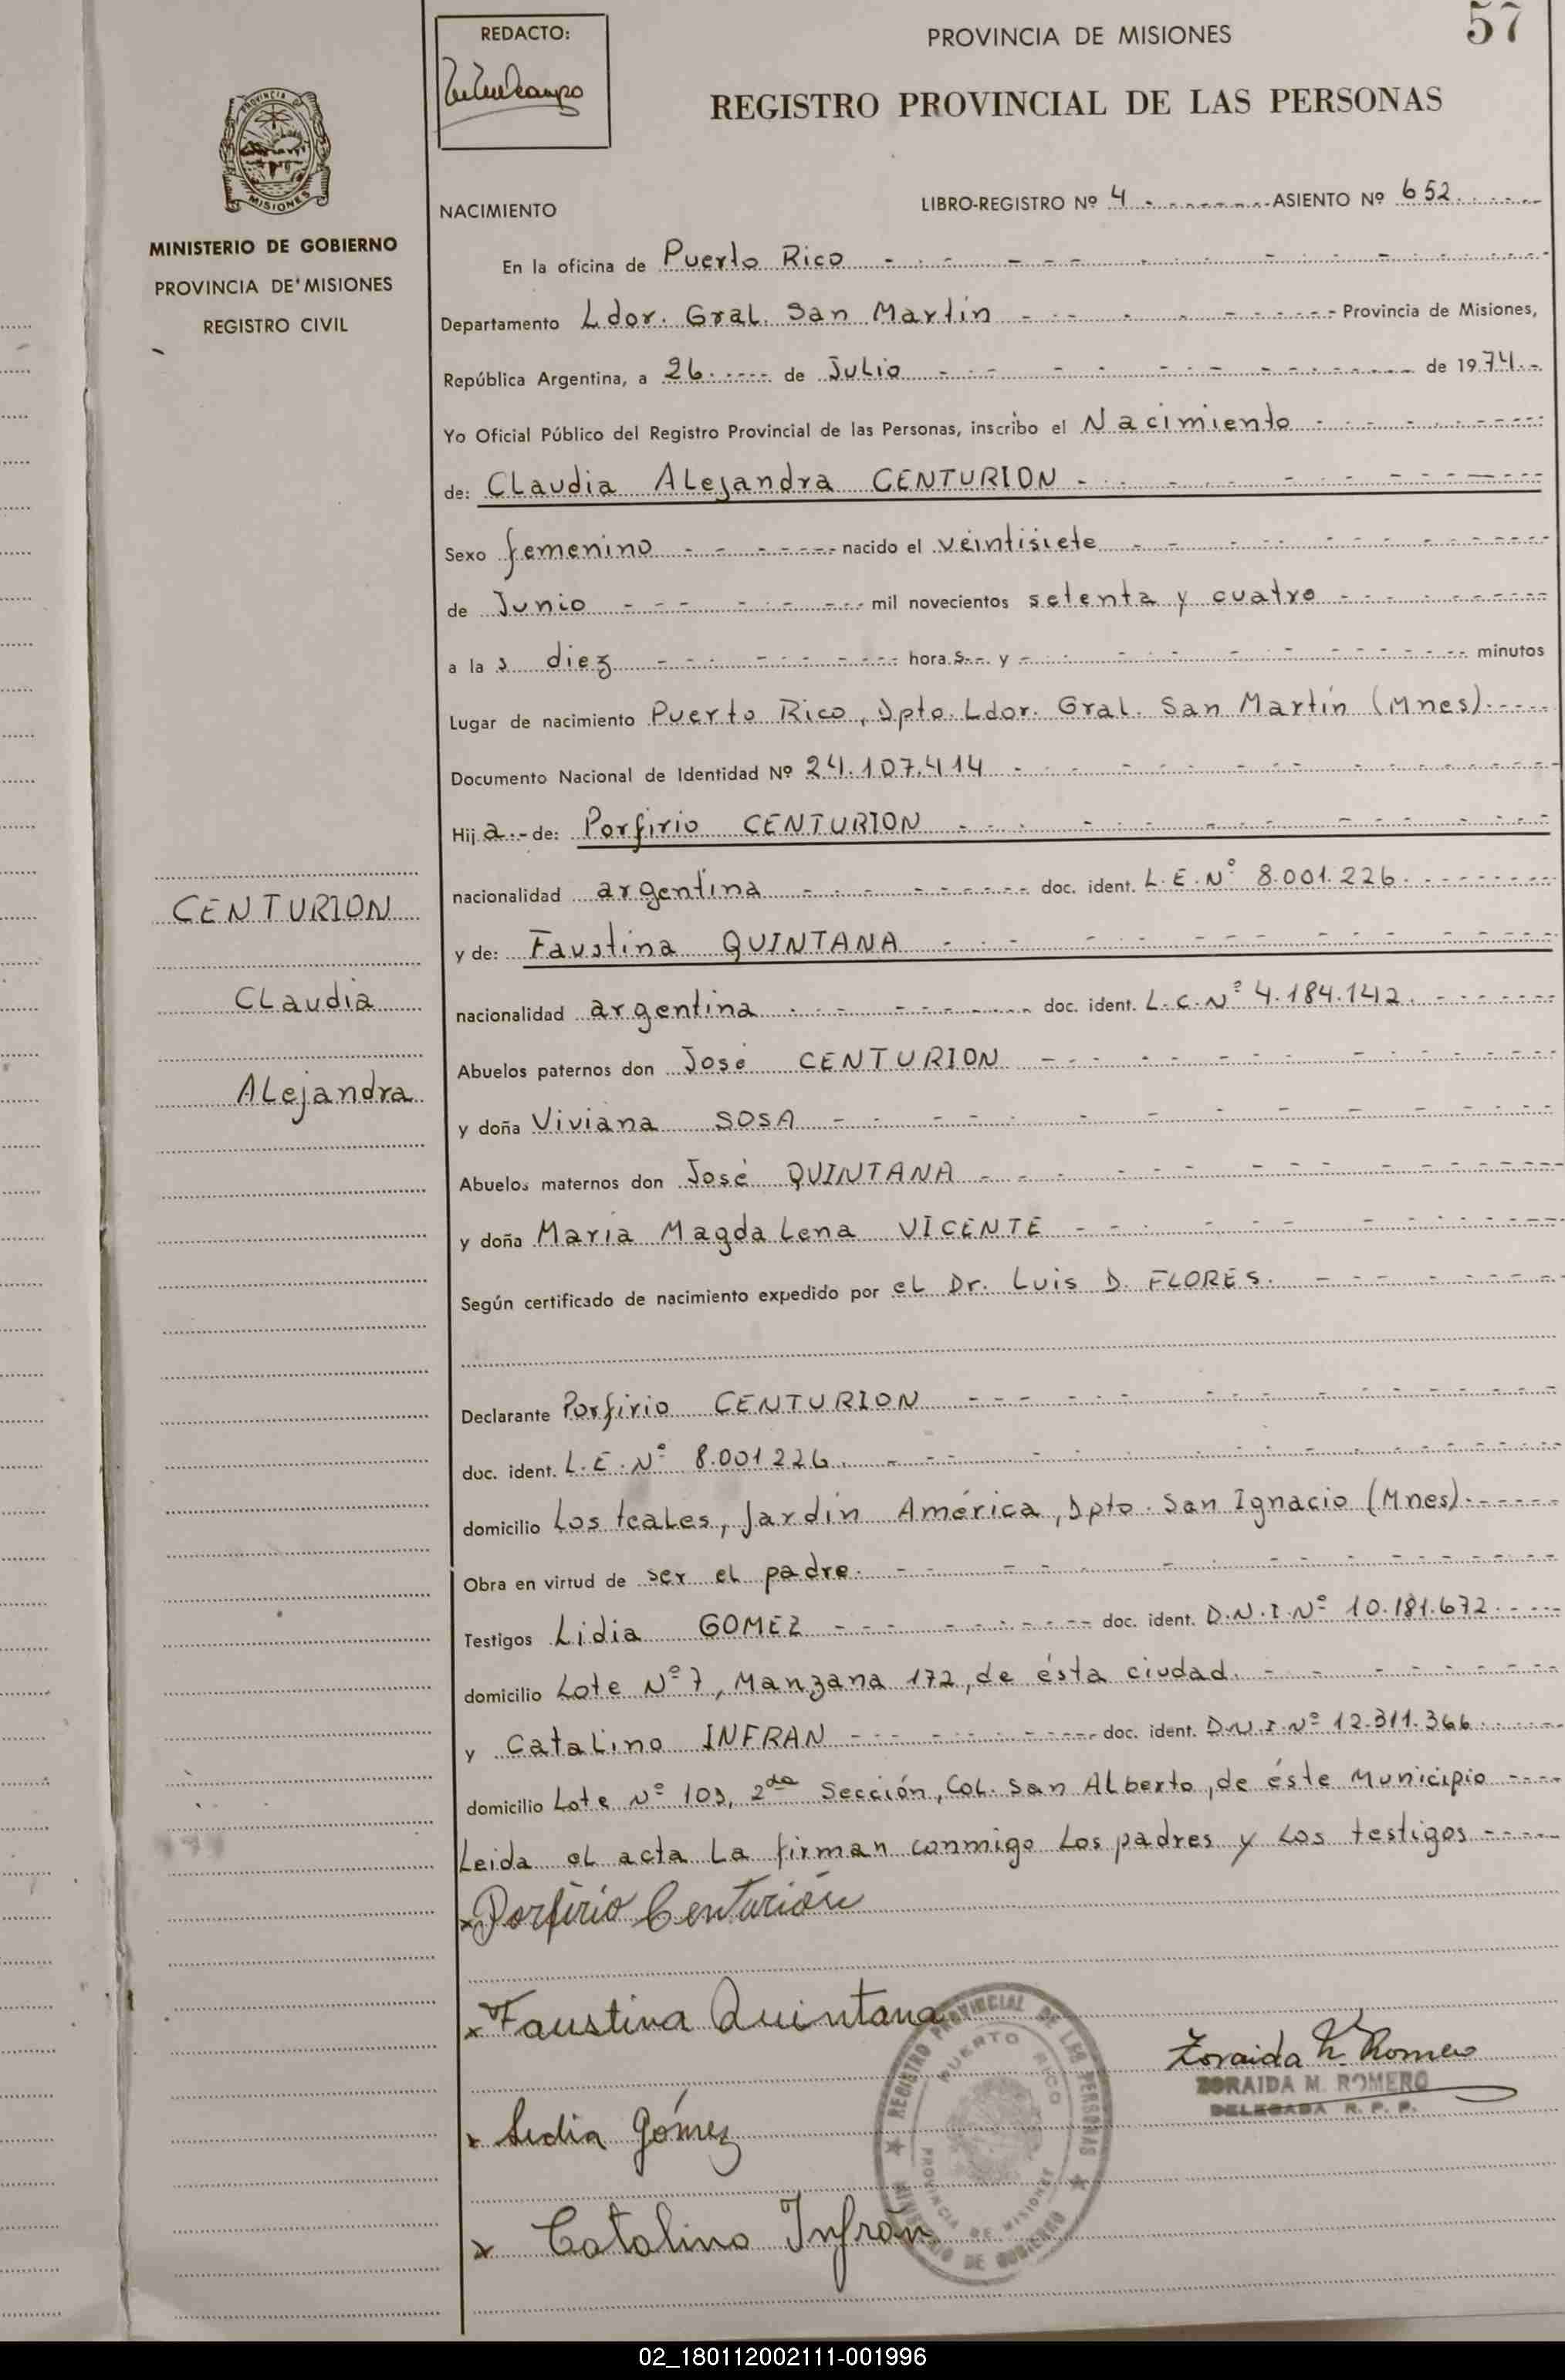 REDACTO:
PROVINCIA DE MISIONES
57
REGISTRO PROVINCIAL DE LAS PERSONAS
PROVINCIA DE
MISIONES
MINISTERIO DE GOBIERNO
PROVINCIA DE MISIONES
REGISTRO CIVIL
NACIMIENTO
LIBRO-REGISTRO Nº 4 ASIENTO Nº 652
En la oficina de Puerto Rico
Departamento Ldor. Gral. San Martín Provincia de Misiones,
República Argentina, a 26 de Julio de 1974.
Yo Oficial Público del Registro Provincial de las Personas, inscribo el Nacimiento
de: Claudia Alejandra CENTURION
Sexo femenino nacido el veintisiete
de Junio mil novecientos setenta y cuatro
a la s diez hora s y minutos
Lugar de nacimiento Puerto Rico, Dpto. Ldor. Gral. San Martín (Mnes).
Documento Nacional de Identidad Nº 24.107.414
Hij a de: Porfirio CENTURION
nacionalidad argentina doc. ident. L.E.Nº 8.001.226.
y de: Faustina QUINTANA
nacionalidad argentina doc. ident. L.C.Nº 4.184.142.
Abuelos paternos don José CENTURION
y doña Viviana SOSA
Abuelos maternos don José QUINTANA
y doña María Magdalena VICENTE
Según certificado de nacimiento expedido por el Dr. Luis D. FLORES.
Declarante Porfirio CENTURION
doc. ident. L.E.Nº 8.001.226.
domicilio Los teales, Jardín América, Dpto. San Ignacio (Mnes).
Obra en virtud de ser el padre.
Testigos Lidia GOMEZ doc. ident. D.N.I.Nº 10.181.672.
domicilio Lote Nº 7, Manzana 172, de ésta ciudad.
y Catalino INFRAN doc. ident. D.N.I.Nº 12.311.366.
domicilio Lote Nº 103, 2da Sección, Col. San Alberto, de éste Municipio
Leida el acta la firman conmigo los padres y los testigos
CENTURION
Claudia
Alejandra
x Porfirio Centurión
x Faustina Quintana
x Lidia Gómez
x Catalino Infrán
REGISTRO PROVINCIAL DE LAS PERSONAS
PUERTO RICO
PROVINCIA DE MISIONES
MINISTERIO DE GOBIERNO
Zoraida M. Romero
ZORAIDA M. ROMERO
DELEGADA R. P. P.
02_180112002111-001996